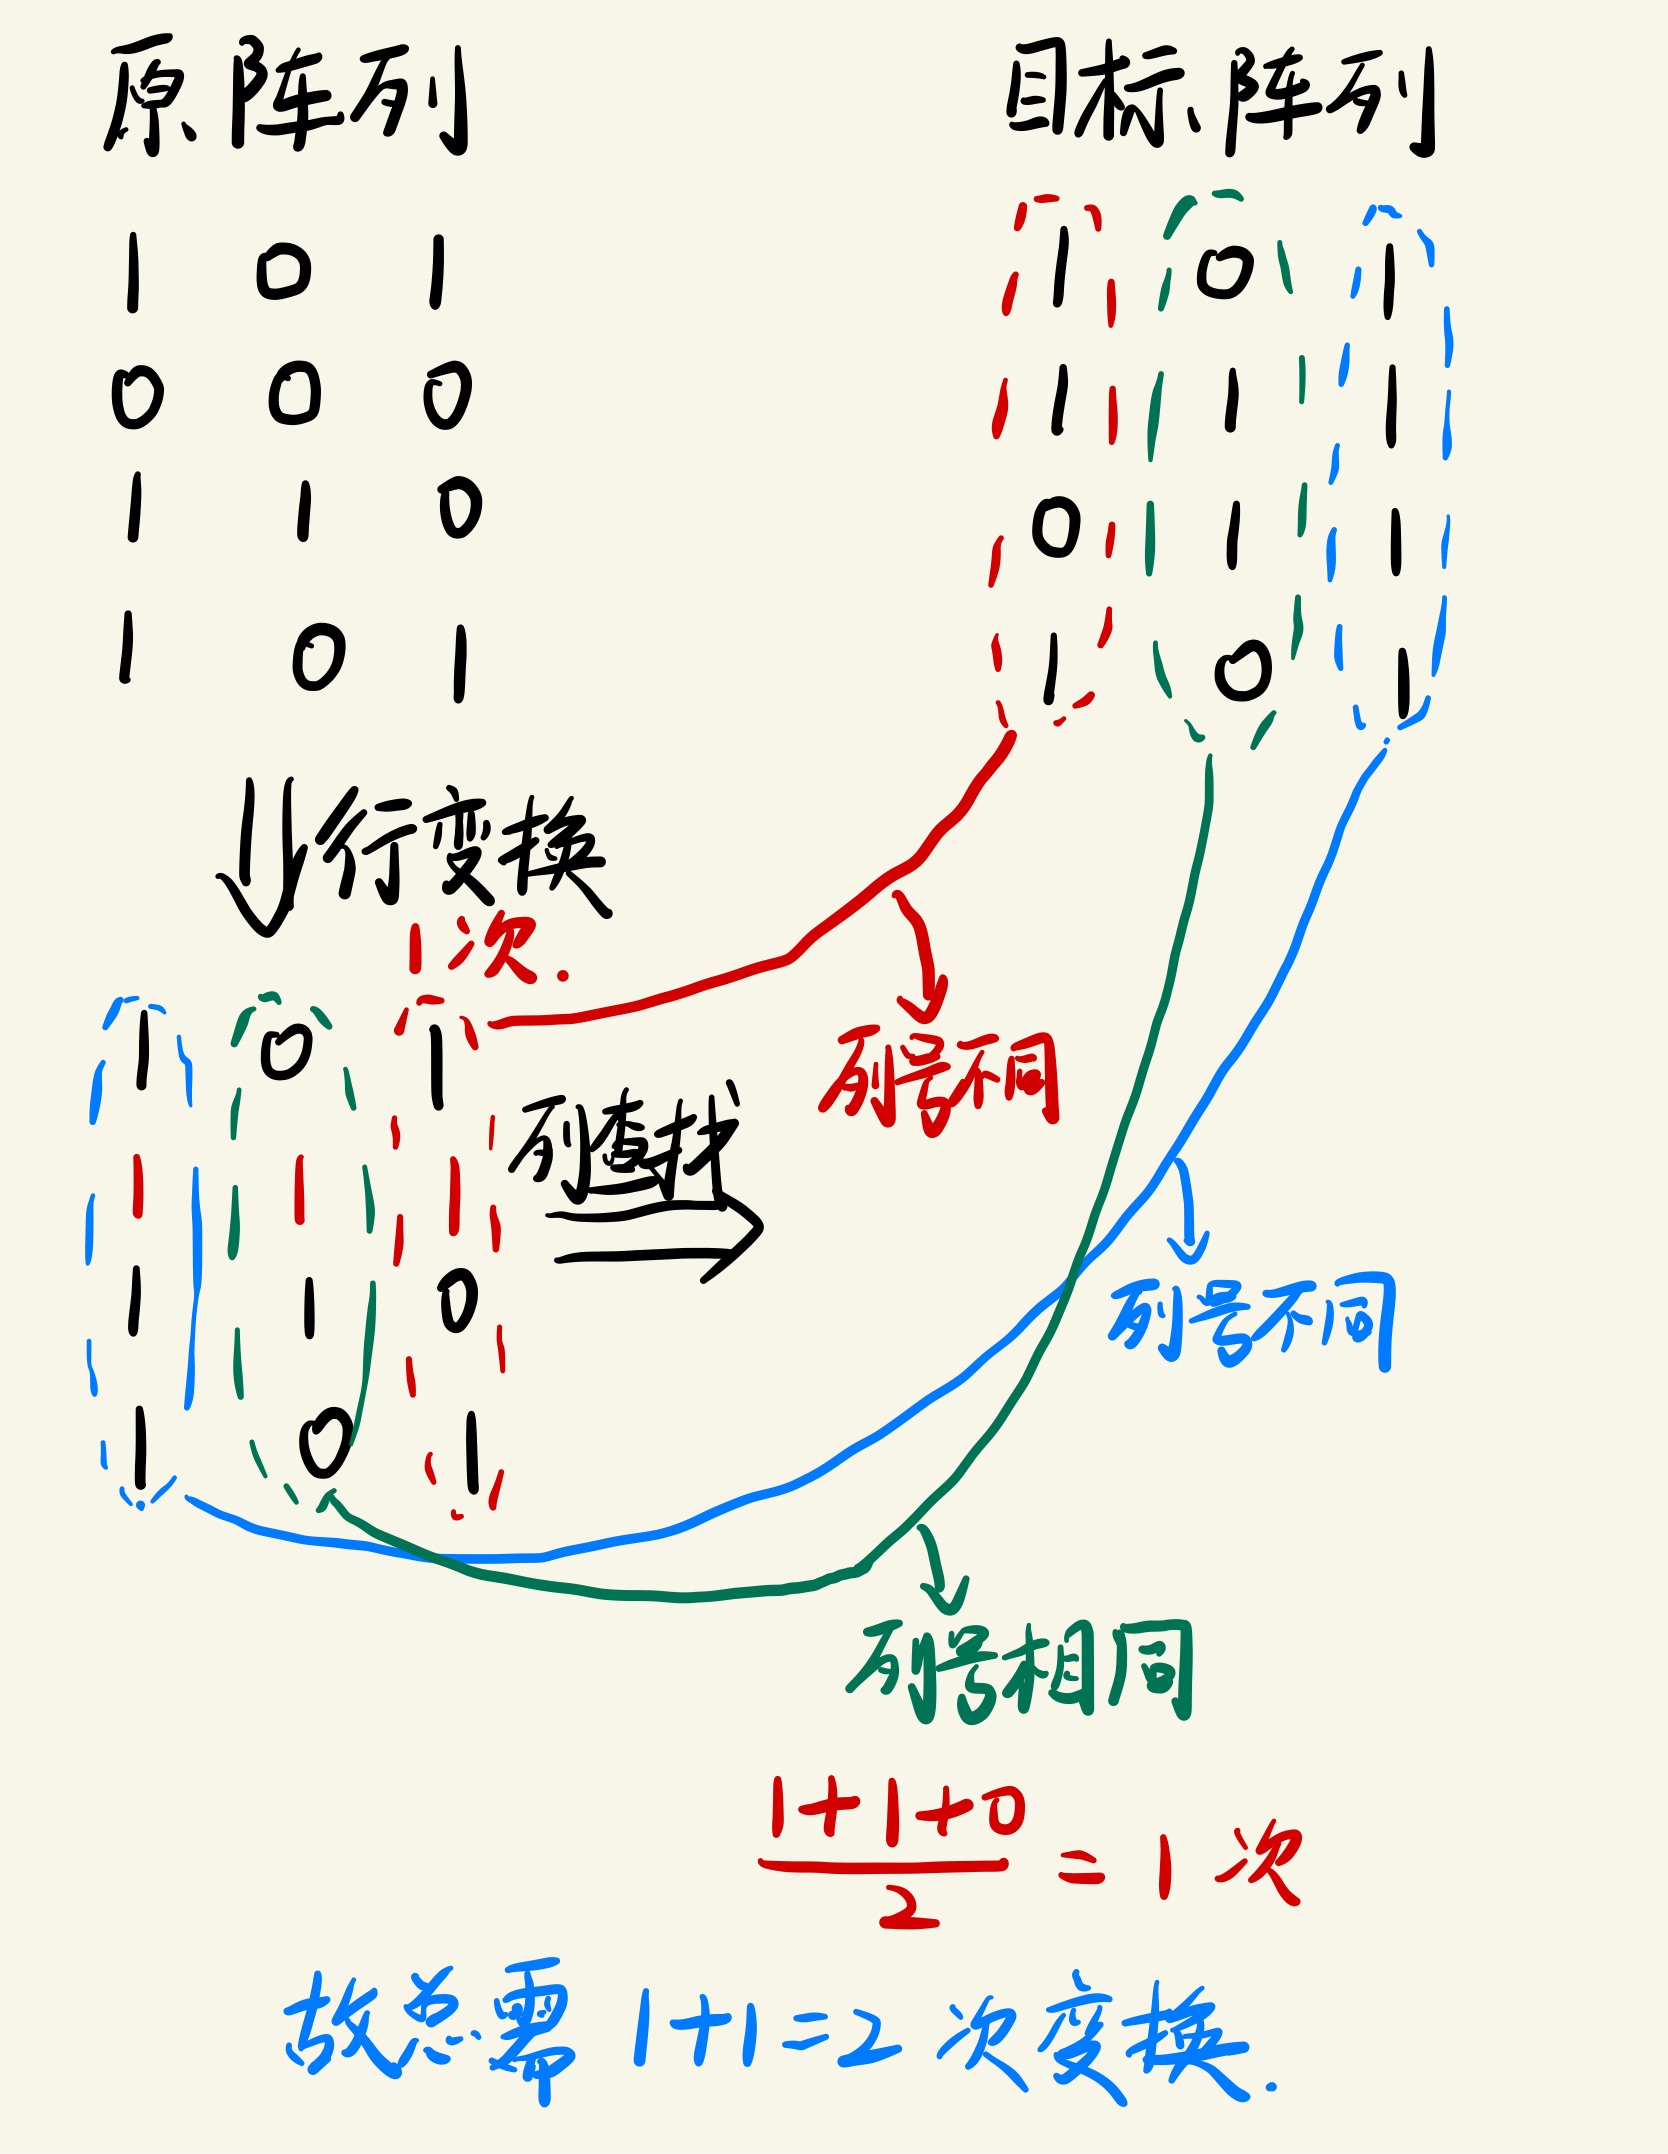 原阵列
1 0 1
0 0 0
1 1 0
1 0 1
目标阵列
1 0 1
1 1 1
0 1 1
1 0 1
行变换
1次.
1 0 1
1 1 1
1 1 0
1 0 1
列查找
列号不同
列号不同
列号相同
1+1+0
2
=1次
故总需 1+1=2 次变换.